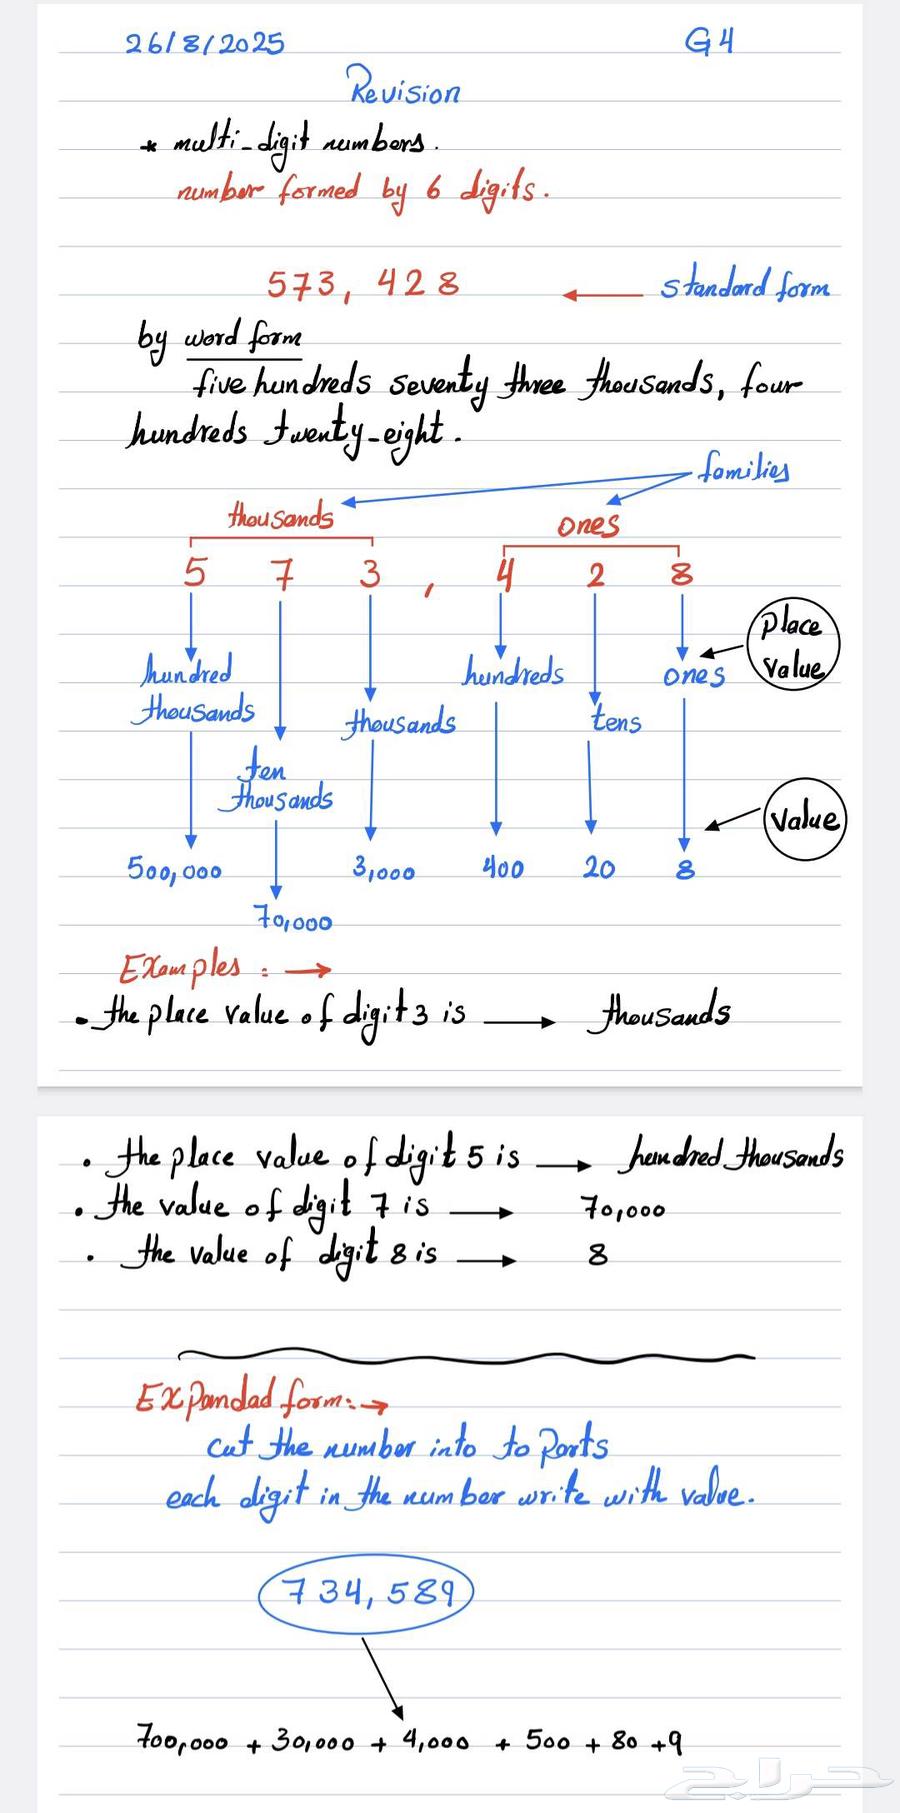 26/8/2025 G4
Revision
* multi-digit numbers.
number formed by 6 digits.
573, 428 ← standard form
by word form
five hundreds seventy three thousands, four
hundreds twenty-eight.
families
thousands ones
5 7 3 , 4 2 8
place
value
hundred
thousands
hundreds ones
thousands tens
ten
thousands
value
500,000 3,000 400 20 8
70,000
Examples : →
• the place value of digit 3 is → thousands
• the place value of digit 5 is → hundred thousands
• the value of digit 7 is → 70,000
• the value of digit 8 is → 8
Expandad form: →
cut the number into to Parts
each digit in the number write with value.
734,589
700,000 + 30,000 + 4,000 + 500 + 80 +9
حراج